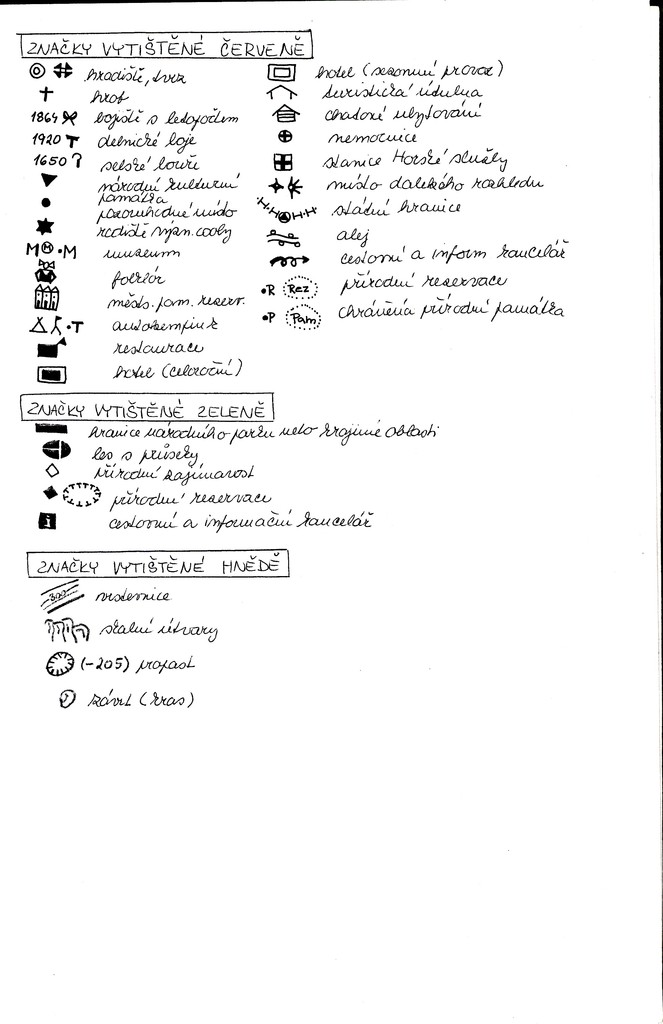 ZNAČKY VYTIŠTĚNÉ ČERVENĚ
hradiště, tvrz
hrob
1864 bojiště s letopočtem
1920 dělnické boje
1650 selské bouře
národní kulturní
památka
pozoruhodné místo
rodiště význ. osoby
M M •M museum
folklór
městs. pam. reserv.
•T autokempink
restaurace
hotel (celoroční)
hotel (sezonní provoz)
turistická útulna
chatové ubytování
nemocnice
stanice Horské služby
místo dalekého rozhledu
státní hranice
alej
cestovní a inform kancelář
•R Rez přírodní reservace
•P Pam chráněná přírodní památka
ZNAČKY VYTIŠTĚNÉ ZELENĚ
hranice národního parku nebo krajinné oblasti
les s průseky
přírodní zajímavost
přírodní reservace
i cestovní a informační kancelář
ZNAČKY VYTIŠTĚNÉ HNĚDĚ
300 vrstevnice
skalní útvary
(-205) propast
závrt (kras)